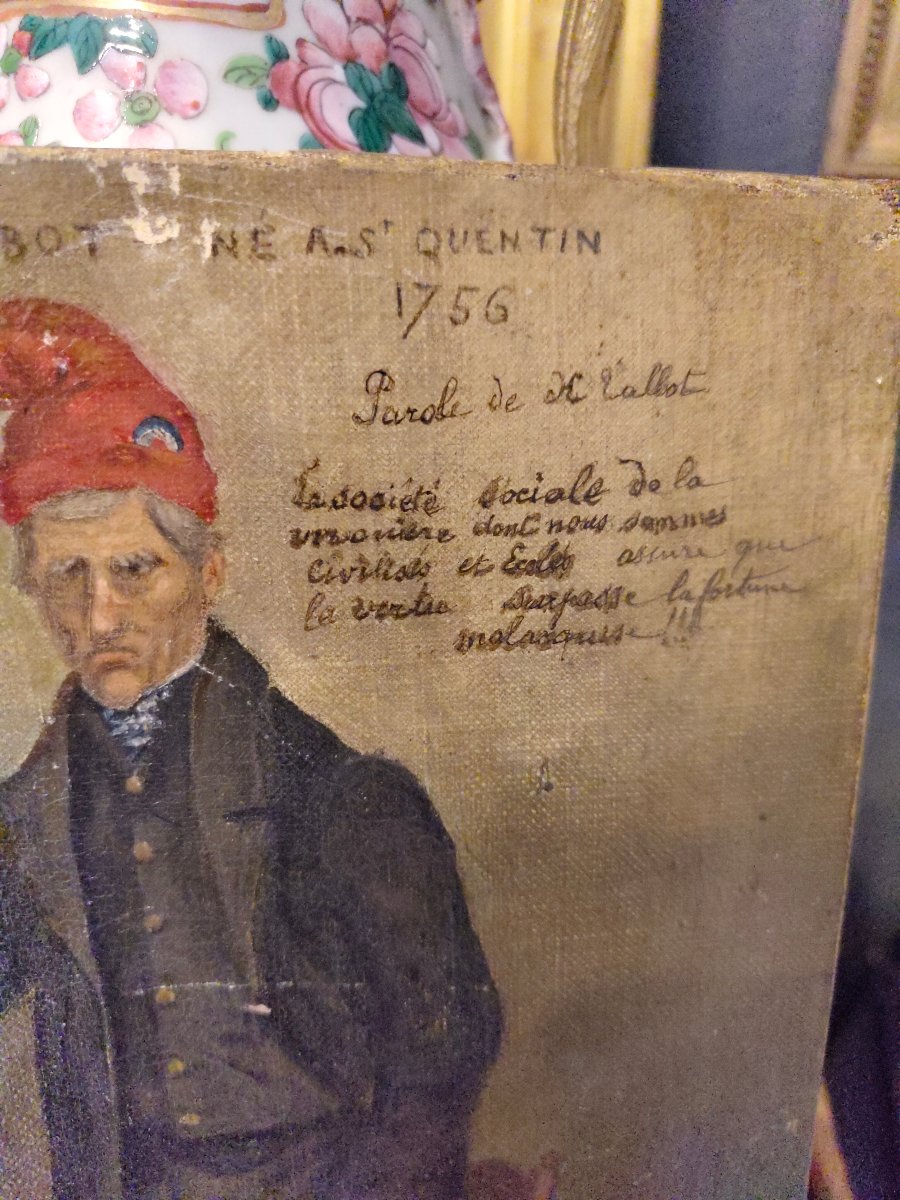 BOT NÉ A St QUENTIN
1756
Parole de H Talbot
La société sociale de la
dont nous sommes
civilisés et assure que
la vertu surpasse la fortune
mal acquise !!!